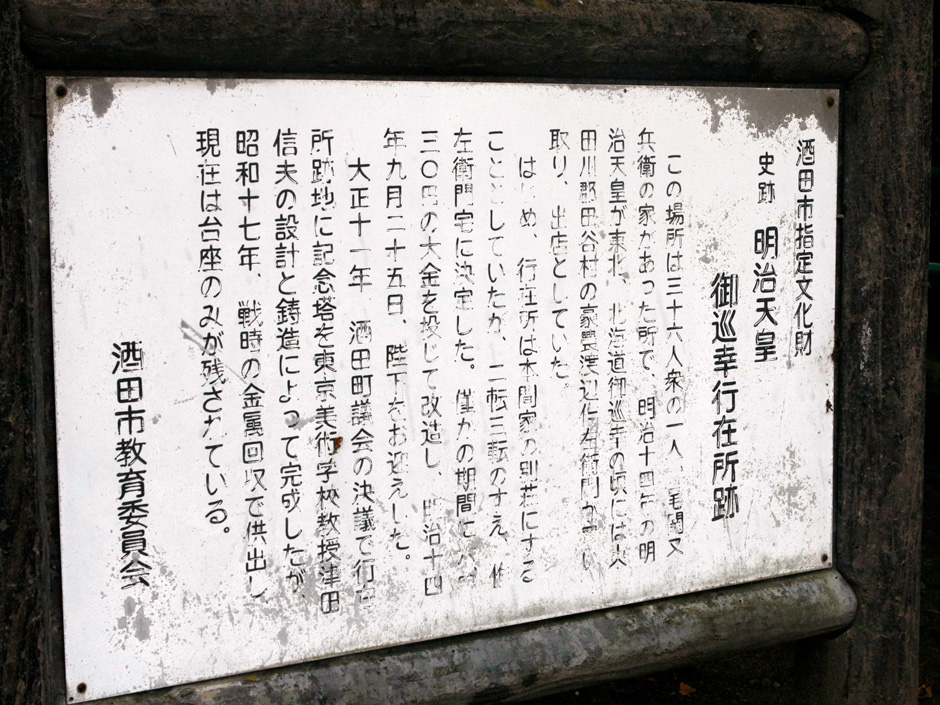 酒田市指定文化財
史跡 明治天皇
御巡幸行在所跡
この場所は三十六人衆の一人、尾関又
兵衛の家があった所で、明治十四年の明
治天皇が東北、北海道御巡幸の頃には
田川郡田谷村の豪農渡辺作左衛門が
取り、出店としていた。
はじめ、行在所は本間家の別荘にする
こととしていたが、二転三転のすえ、作
左衛門宅に決定した。僅かの期間に
三〇円の大金を投じて改造し、明治十四
年九月二十五日、陛下をお迎えした。
大正十一年 酒田町議会の決議で行在
所跡地に記念塔を東京美術学校教授津田
信夫の設計と鋳造によって完成したが
昭和十七年、戦時の金属回収で供出し
現在は台座のみが残されている。
酒田市教育委員会